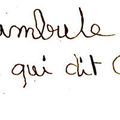 ambule
qui dit